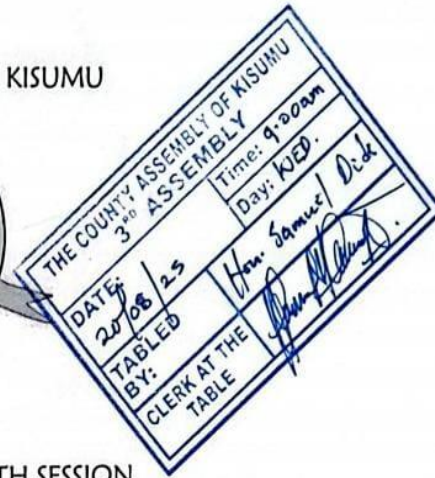 KISUMU
THE COUNTY ASSEMBLY OF KISUMU
3RD ASSEMBLY
DATE: 20/08/25
Time: 9:00am
Day: WED.
TABLED BY:
Hon. Samuel Dick
CLERK AT THE TABLE
TH SESSION